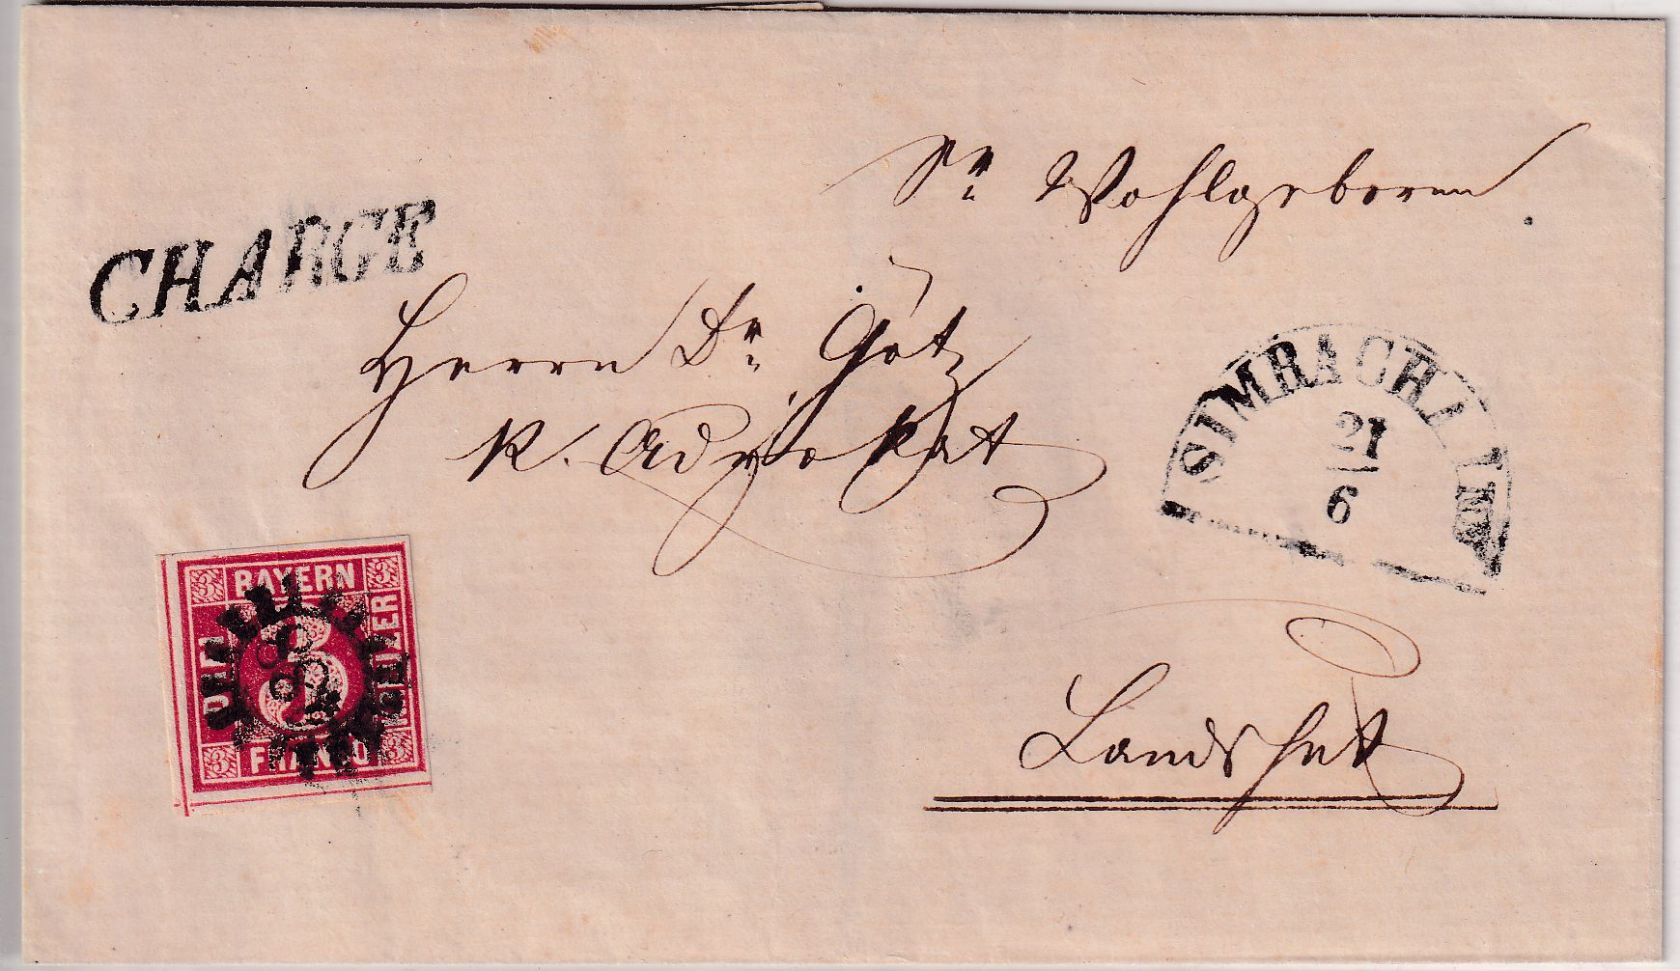 Sr. Wohlgeboren
CHARGE
Herrn Dr. Götz
K. Advokat
SIMBACH A. INN
21
6
3 BAYERN 3
DREI
KREUZER
3 FRANCO 3
Landshut